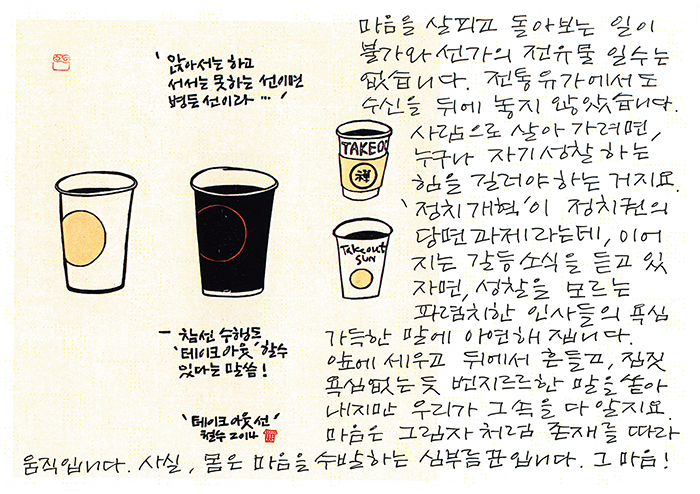 '앉아서는 하고
서서는 못하는 선이면
병든 선이라 …'
TAKEO
禪
Takeout
SUN
- 참선 수행도
'테이크아웃' 할수
있다는 말씀!
'테이크아웃 선'
철수 2014
마음을 살피고 돌아보는 일이
불가와 선가의 전유물 일수는
없습니다. 전통유가에서도
수신을 뒤에 놓지 않았습니다.
사람으로 살아 가려면,
누구나 자기성찰 하는
힘을 길러야 하는 거지요.
'정치개혁'이 정치권의
당면과제라는데, 이어
지는 갈등소식을 듣고 있
자면, 성찰을 모르는
파렴치한 인사들의 욕심
가득한 말에 아연해 집니다.
앞에 세우고 뒤에서 흔들고, 짐짓
욕심없는 듯 번지르르한 말을 쏟아
내지만 우리가 그 속을 다 알지요.
마음은 그림자처럼 존재를 따라
움직입니다. 사실, 몸은 마음을 수발하는 심부름꾼입니다. 그 마음!